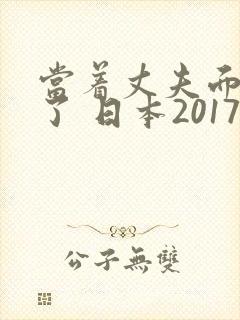 當着丈夫而
了 日本2017
公子無雙